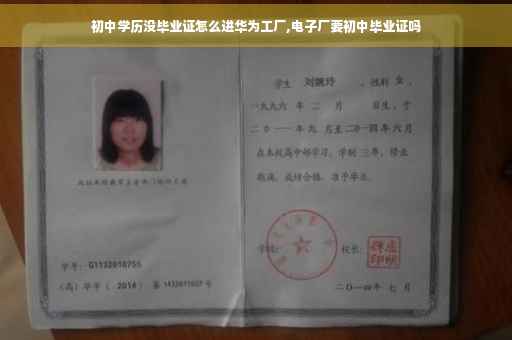 初中学历没毕业证怎么进华为工厂,电子厂要初中毕业证吗
学生 刘婉玲 ，性别 女 ，
一九九六 年 二 月 日生，于
二〇一一 年 九 月至 二〇一四 年 六 月
在本校高中部学习，学制 三 年，修业
期满，成绩合格，准予毕业。
学号：G1132010755
（高）毕字（ 2014 ）第 1432011027 号
学校：
校长：
二〇一四年 七 月